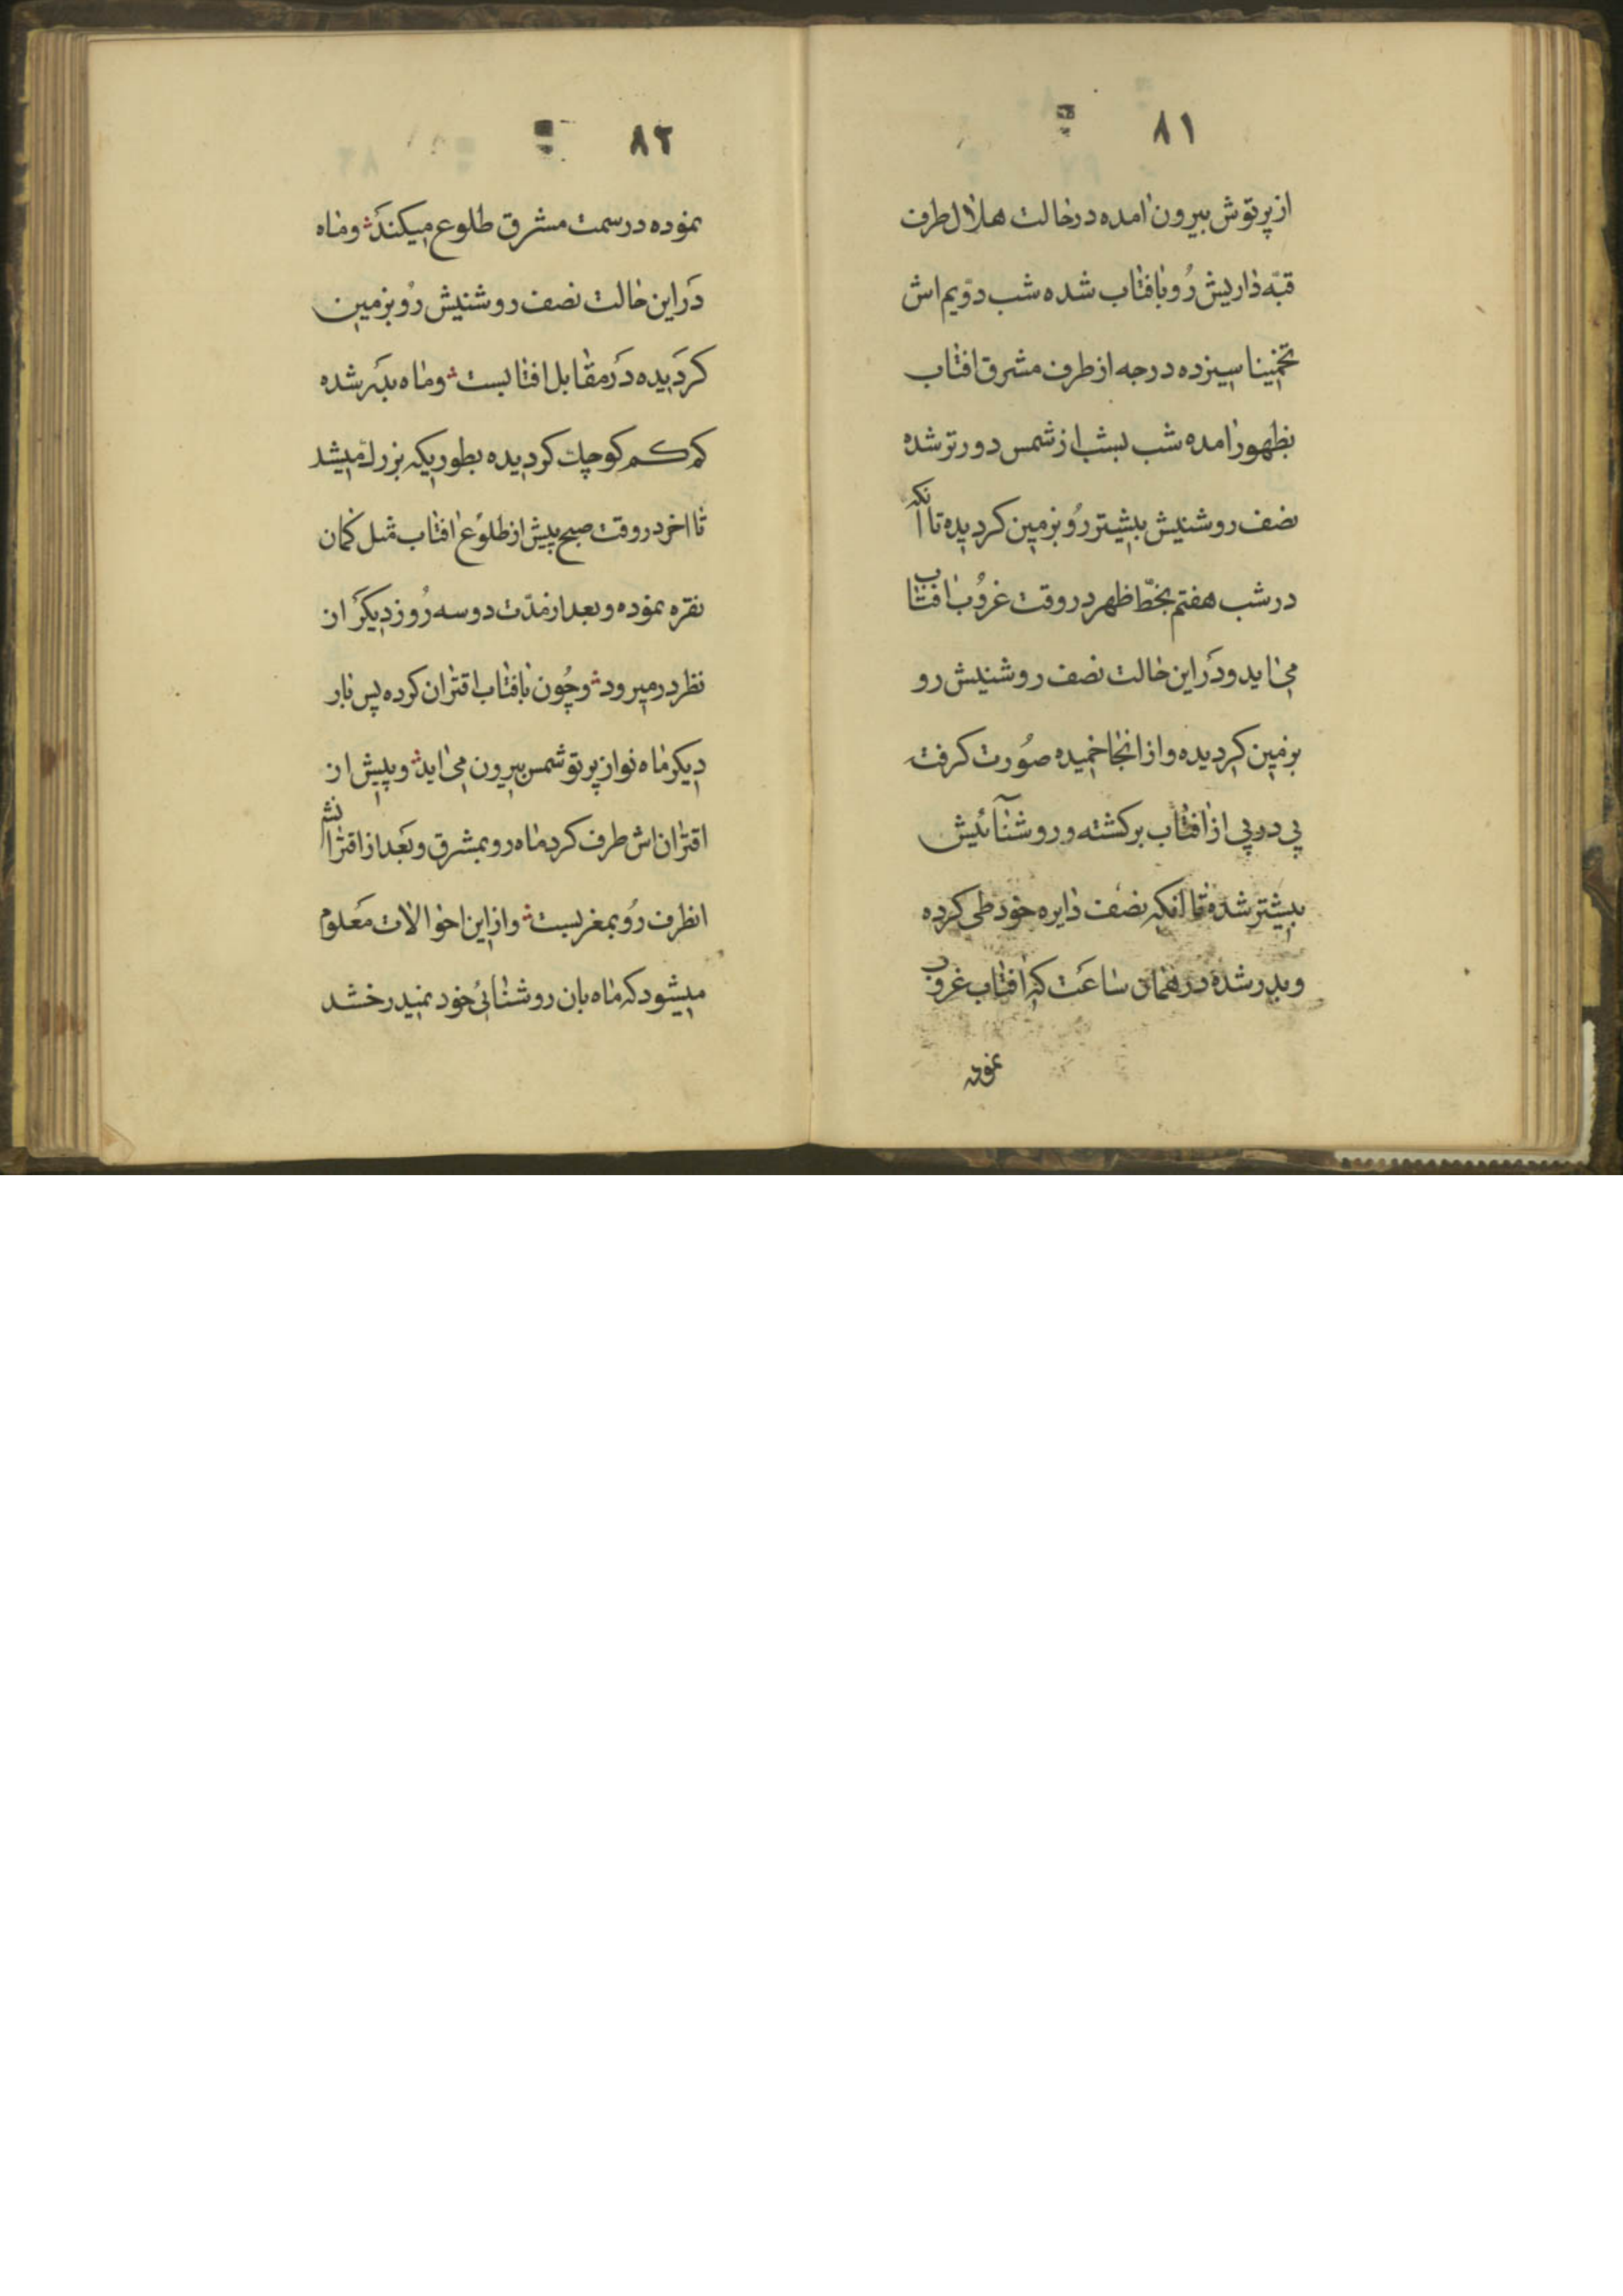 ۸۱
از پرتوش بیرون امده در حالت هلال طرف
قبّه داریش رُو بافتاب شده شب دوّیم اش
تخمینا سیزده درجه از طرف مشرق افتاب
بظهور امده شب بشب از شمس دورتر شده
نصف روشنیش بیشتر رُو بزمین کردیده تا انکه
در شب هفتم بخطّ ظهر در وقت غروُب افتاب
می اید و دَر این حالت نصف روشنیش رو
بزمین کردیده و از انجا خمیده صوُرت کرفته
پی در پی از افتاب برکشته و روشنآئیش
بیشتر شده تا انکه نصف دایره خود طی کرده
و بدر شده در همان ساعَت که افتاب غروب
نموده
۸۲
نموده در سمت مشرق طلوع میکندَ و ماه
دَر این حالت نصف روشنیش رُو بزمین
کردَیده دَر مقابل افتابست و ماه بدَر شده
کم کم کوچك کردیده بطوریکه بزرك میشد
تا اخر در وقت صبح پیش از طلوُع افتاب مثل کمان
نقره نموده و بعد از مدّت دو سه رُوز دیکَر از
نظر در میرود و چُون با افتاب اقتران کرده پس بار
دیکر ماه نو از پرتو شمس بیرون می اید و پیش از
اقتران اش طرف کرد ماه رو بمشرق و بَعد از اقترانش
انطرف رُو بمغربست و از این احوالات مَعلوم
میشود که ماه بان روشنائی خود نمیدرخشد